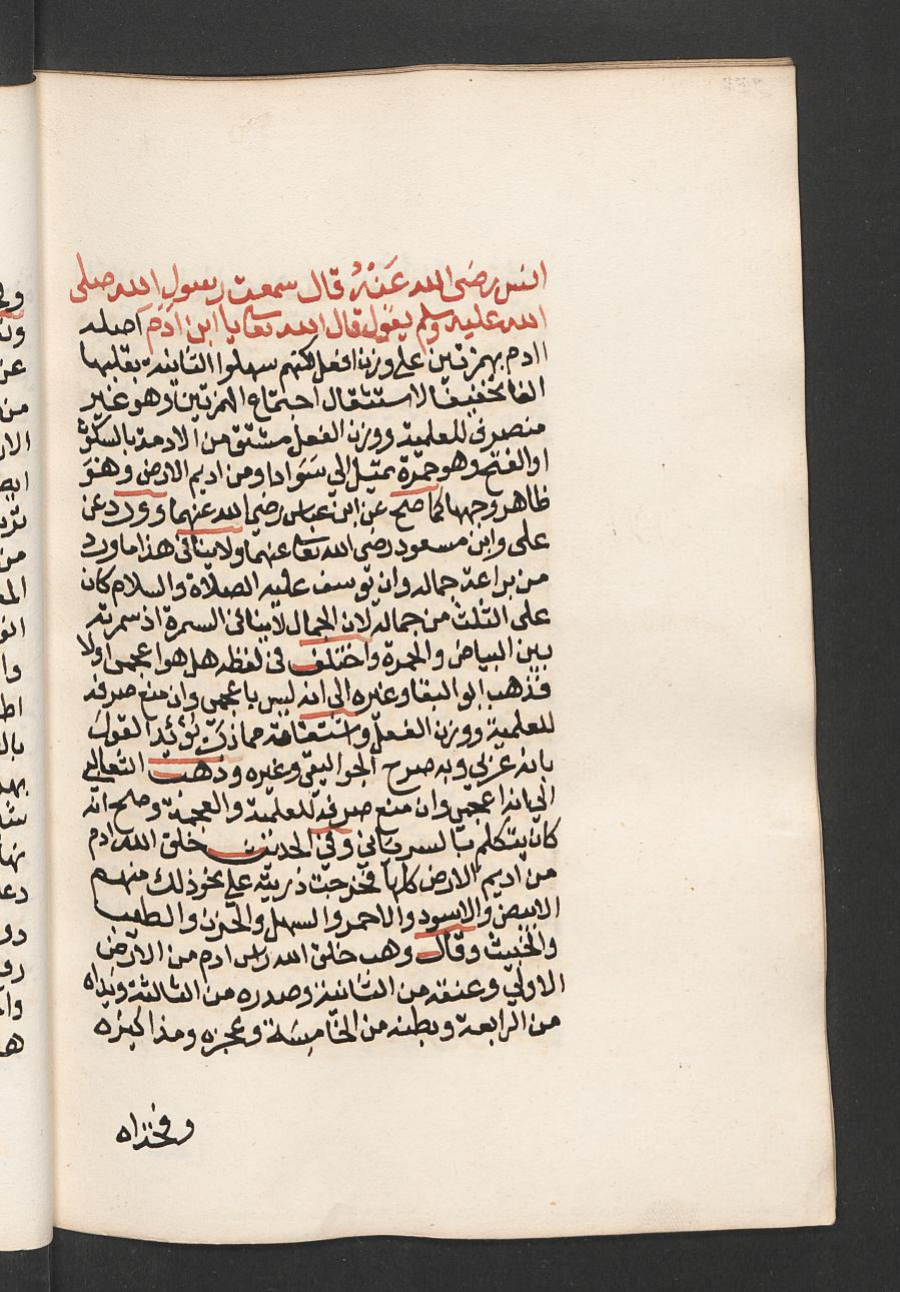 انس رضى الله عَنْهُ قال سمعت رسول الله صلى
الله عليه وسلم يقول قال الله تعا يا ابن ادم اصله
اادم بهمزتين على وزن افعل لكنهم سهلوا الثانية بقلبها
الفا تخفيفا لاستثقال اجتماع الهمزتين وهو غير
منصرف للعلمية ووزن الفعل مشتق من الادمة بالسكون
او الفتح وهو حمرة تميل الى سَوَاد او من اديم الارض وهو
ظاهر وجهها كما صح عن ابن عباس رضى الله عنهما وورد عن
على وابن مسعود رضى الله تعا عنهما ولا ينافى هذا ما ورد
من براعة جماله وان يوسف عليه الصلاة والسلام كان
على الثلث من جماله لان الجمال لا ينافى السمرة اذ سمرته
بين البياض والحمرة واختلف فى لفظه هل هو اعجمى اولا
فذهب ابو البقا وغيره الى انه ليس باعجمى وان منع صرفه
للعلمية ووزن الفعل واشتقاقه مما ذكر يؤيد القول
بانه عربي وبه صرح الجواليقى وغيره وذهب الثعالبي
الى انه اعجمي وان منع صرفه للعلمية والعجمة وصح انه
كان يتكلم بالسرياني وفى الحديث خلق الله ادم
من اديم الارض كلها فخرجت ذريته على نحو ذلك منهم
الابيض والاسود والاحمر والسهل والحزن والطيب
والخبيث وقال وهب خلق الله راس ادم من الارض
الاولى وعنقه من الثانية وصدره من الثالثة ويداه
من الرابعة وبطنه من الخامسة وعجزه ومذاكيره
وفخذاه